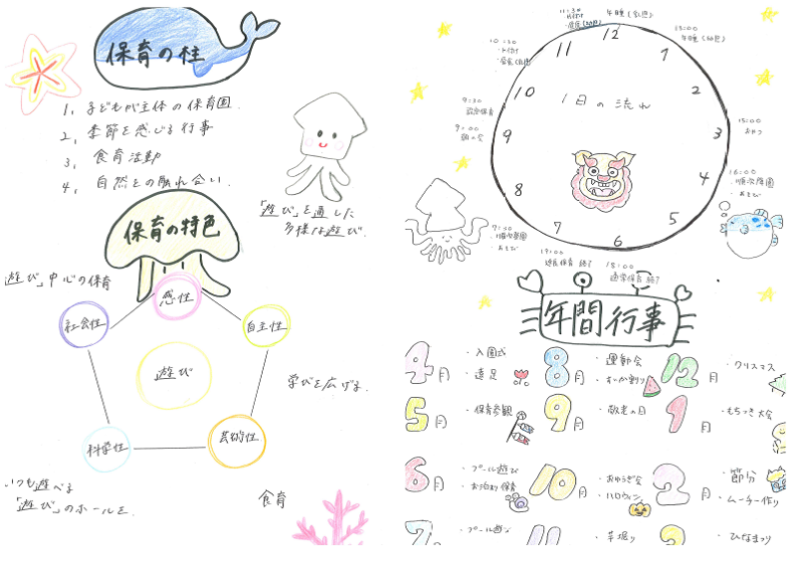 保育の柱
1, 子どもが主体の保育園
2, 季節を感じる行事
3, 食育活動
4, 自然との触れ合い.
「遊び」を通した
多様な遊び.
保育の特色
遊び」中心の保育
感性
社会性
自主性
遊び
学びを広げる.
科学性
芸術性
いつも遊べる
「遊び」のホールを.
食育
12
11
1
10
2
9
3
8
4
7
5
6
1日の流れ
15:00
・おやつ
16:00
・順次降園
・あそび
7:00
・順次登園
・あそび
9:00
朝の会
9:30
18:00
年間行事
4月
・入園式
・遠足
8月
・運動会
・すいか割り
12月
・クリスマス
5月
・保育参観
9月
・敬老の日
1月
・もちつき大会
6月
・プール遊び
・お泊り保育
10月
・おゆうぎ会
・ハロウィン
2月
・節分
・ムーチー作り
7月
・プール遊び
11月
・芋掘り
3月
・ひなまつり